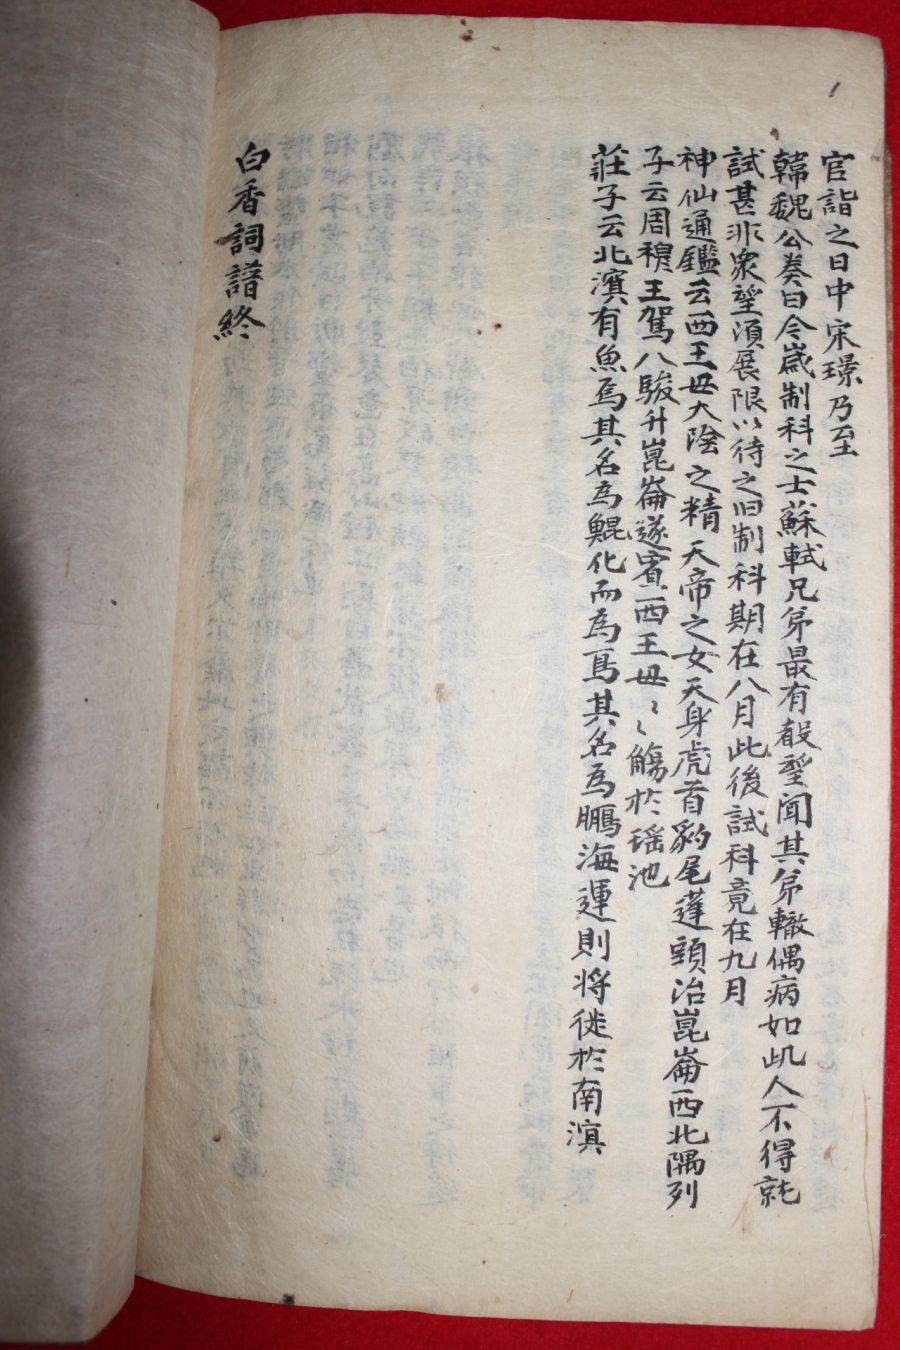 官詣之日中宋璟乃至
韓魏公奏曰今歲制科之士蘇軾兄弟最有聲望聞其弟轍偶病如此人不得就
試甚非衆望湏展限以待之旧制科期在八月此後試科竟在九月
神仙通鑑云西王母大陰之精天帝之女天身虎首豹尾蓬頭治崑崙西北隅列
子云周穆王駕八駿升崑崙遂賓西王母〻〻觴於瑶池
莊子云北溟有魚焉其名為鯤化而為鳥其名為鵬海運則将徙於南溟
白香詞譜終